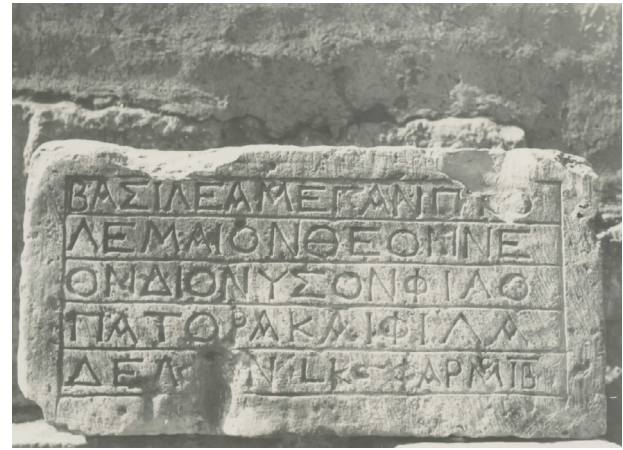 ΒΑΣΙΛΕΑΜΕΓΑΝΠΤΟ
ΛΕΜΑΙΟΝΘΕΟΝΝΕ
ΟΝΔΙΟΝΥΣΟΝΦΙΛΟ
ΠΑΤΟΡΑΚΑΙΦΙΛΑ
ΦΑΡΜΙΒ